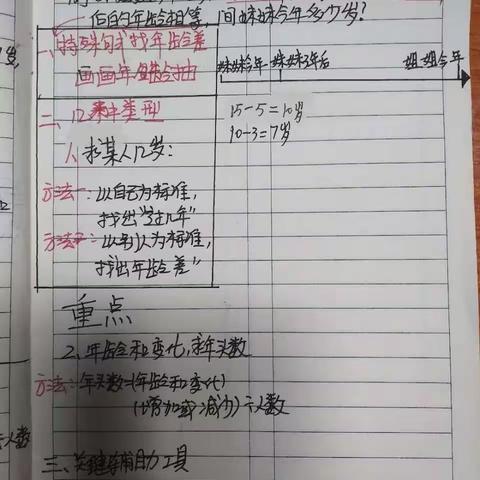 但自的年龄相等,问妹妹今年多少岁?
一、特殊句式找年龄差
画画年龄轴
妹妹今年 妹妹3年后 姐姐今年
15-5=10岁
10-3=7岁
二、几种类型
1、求某人几岁:
方法一:以自己为标准,
找出“过几年”
方法二:以别人为标准,
找出年龄差”
重点
2、年龄和变化,求年头数
方法:年头数=(年龄和变化)
(增加或减少)÷人数
三、关键辅助工具